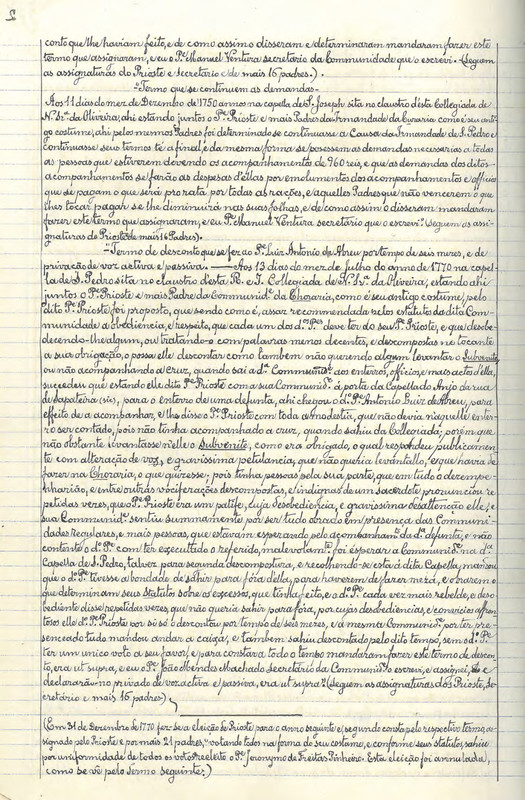 2
conto que lhe haviam feito, e de como assim o disseram e determinaram mandaram fazer este
termo que assignaram, e eu o Pe. Manuel Ventura secretário da Communidade que o escrevi. (Seguem
as assignaturas do Prioste e Secretário e de mais 16 padres.).
"Termo que se continuem as demandas-
Aos 11 dias do mez de Dezembro de 1750 annos na capella de S. Joseph sita no claustro desta Collegiada de
N. Srª. da Oliveira, ahi estando juntos o Pe. Prioste e mais Padres da Irmandade da Coraria como é seu anti-
go costume, ahi pelos mesmos Padres foi determinado se continuasse a Causa da Irmandade de S. Pedro e
continuasse seus termos té a final, e da mesma forma se posessem as demandas necessarias a todas
as pessoas que estiverem devendo os acompanhamentos de 960 reis, e que as demandas dos ditos
acompanhamentos se farão as despesas d'ellas por emolumentos dos acompanhamentos e officios
que se pagam o que será pro rata por todas as rações, e aquelles Padres que não vencerem o que
lhes tocar pagar se lhe diminuirá nas suas folhas, e de como assim o disseram mandaram
fazer este termo que assignaram, e eu Pe. Manuel Ventura secretário que o escrevi. (Seguem as assi-
gnaturas do Prioste de mais 14 Padres).
"Termo de desconto que se fez ao Pe. Luiz Antonio de Abreu por tempo de seis mezes, e de
privação de voz activa e passiva. — Aos 13 dias do mez de Julho do anno de 1770 na capel-
la de S. Pedro sita no claustro desta R. e I. Collegiada de N. Srª. da Oliveira, estando ahi
juntos o Pe. Prioste e mais Padres da Communide. da Choraria, como é seu antigo costume, pelo
dito Pe. Prioste foi proposto, que sendo como é, assaz recommendada pelos statutos da dita Com-
munidade a obediencia, e respeito, que cada um dos ds. Pes. deve ter do seu Pe. Prioste, e que desobe-
decendo-lhe algum, ou tratando-o com palavras menos decentes, e descompostas no tocante
a sua obrigação, o possa elle descontar como tambem não querendo algum levantar o Subvenite,
ou não acompanhando a Cruz, quando sai a de. Communide. aos enterros, officios, e mais actos d'ella,
succedeu que estando elle dito Pe. Prioste com a sua Communide. á porta da Capella do Anjo da rua
de Sapateira (sic), para o enterro de uma defunta, ahi chegou o do. Pe. Antonio Luiz de Abreu, para
effeito de a acompanhar, e lhe disse o Pe. Prioste com toda a modestia, que não devia n'aquelle enter-
ro ser contado, pois não tinha acompanhado a cruz, quando sahiu da Collegiada; porém que
não obstante levantasse n'elle o Subvenite, como era obrigado, o qual respondeu publicamen-
te com alteração de voz, e gravissima petulancia, que não queria levantallo, e que havia de
fazer na Choraria, o que quizesse; pois tinha pessoas pela sua parte, que em tudo o desempe-
nharião, e entre outras vociferações descompostas, e indignas de um sacerdote pronunciou re-
petidas vezes, que o Pe. Prioste era um patife, cuja desobediencia, e gravissima desattenção elle, e
sua Communide. sentiu summamente por ser tudo obrado em presença das Communi-
dades Regulares, e mais pessoas, que estavam esperando pelo acompanhamto. da da. defunta, e não
contente o do. Pe. com ter executado o referido, malevolamte. foi esperar a Communide. na da.
Capella de S. Pedro, talvez para segunda descompostura, e recolhendo-se esta á dita Capella, mandou
que o do. Pe. tivesse a bondade de sahir para fóra della, para haverem de fazer meza, e obrarem o
que determinam seus Statutos sobre os excessos, que tinha feito, e o do. Pe. cada vez mais rebelde, e deso-
bediente disse repetidas vezes, que não queria sahir para fóra, por cujas desobediencias, e convicios affron-
tosos elle do. Pe. Prioste por si só o descontou por tempo de seis mezes, e a mesma Communide. por ter pre-
senceado tudo mandou andar a caixa, e tambem sahiu descontado pelo dito tempo, sem do. Pe.
ter um unico voto a seu favor, e para constar a todo o tempo mandaram fazer este termo de descon-
to, era ut supra, e eu o Pe. João Mendes Machado secretário da Communide. o escrevi, e assignei, e
declararão-no privado de voz activa e passiva, era ut supra." (Seguem as assignaturas dos Prioste, Se-
cretário e mais 16 padres)
(Em 31 de Dezembro de 1770 fez-se a eleição de Prioste para o anno seguinte e, segundo consta pelo respectivo termo, as-
signado pelo Prioste e por mais 21 padres, "votando todos na forma do seu costume, e conforme seus statutos, sahiu
por uniformidade de todos os votos reeleito o Pe. Jeronymo de Freitas Pinheiro. Esta eleição foi annullada,
como se vê pelo termo seguinte.)